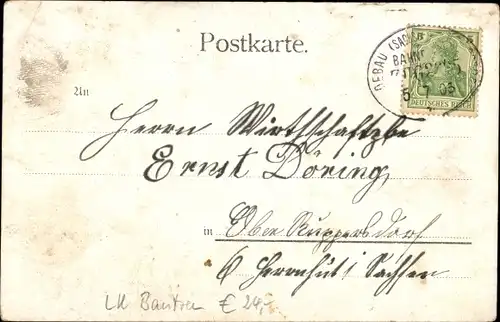 Postkarte.
OEBAU (SACHS
BAHN
5 7 03
DEUTSCHES REICH
An
Herrn Wirthschaftsbe
Ernst Döring
in Ober Ruppersdorf
b Herrnhut i Sachsen
LK Bautzen € 24,-